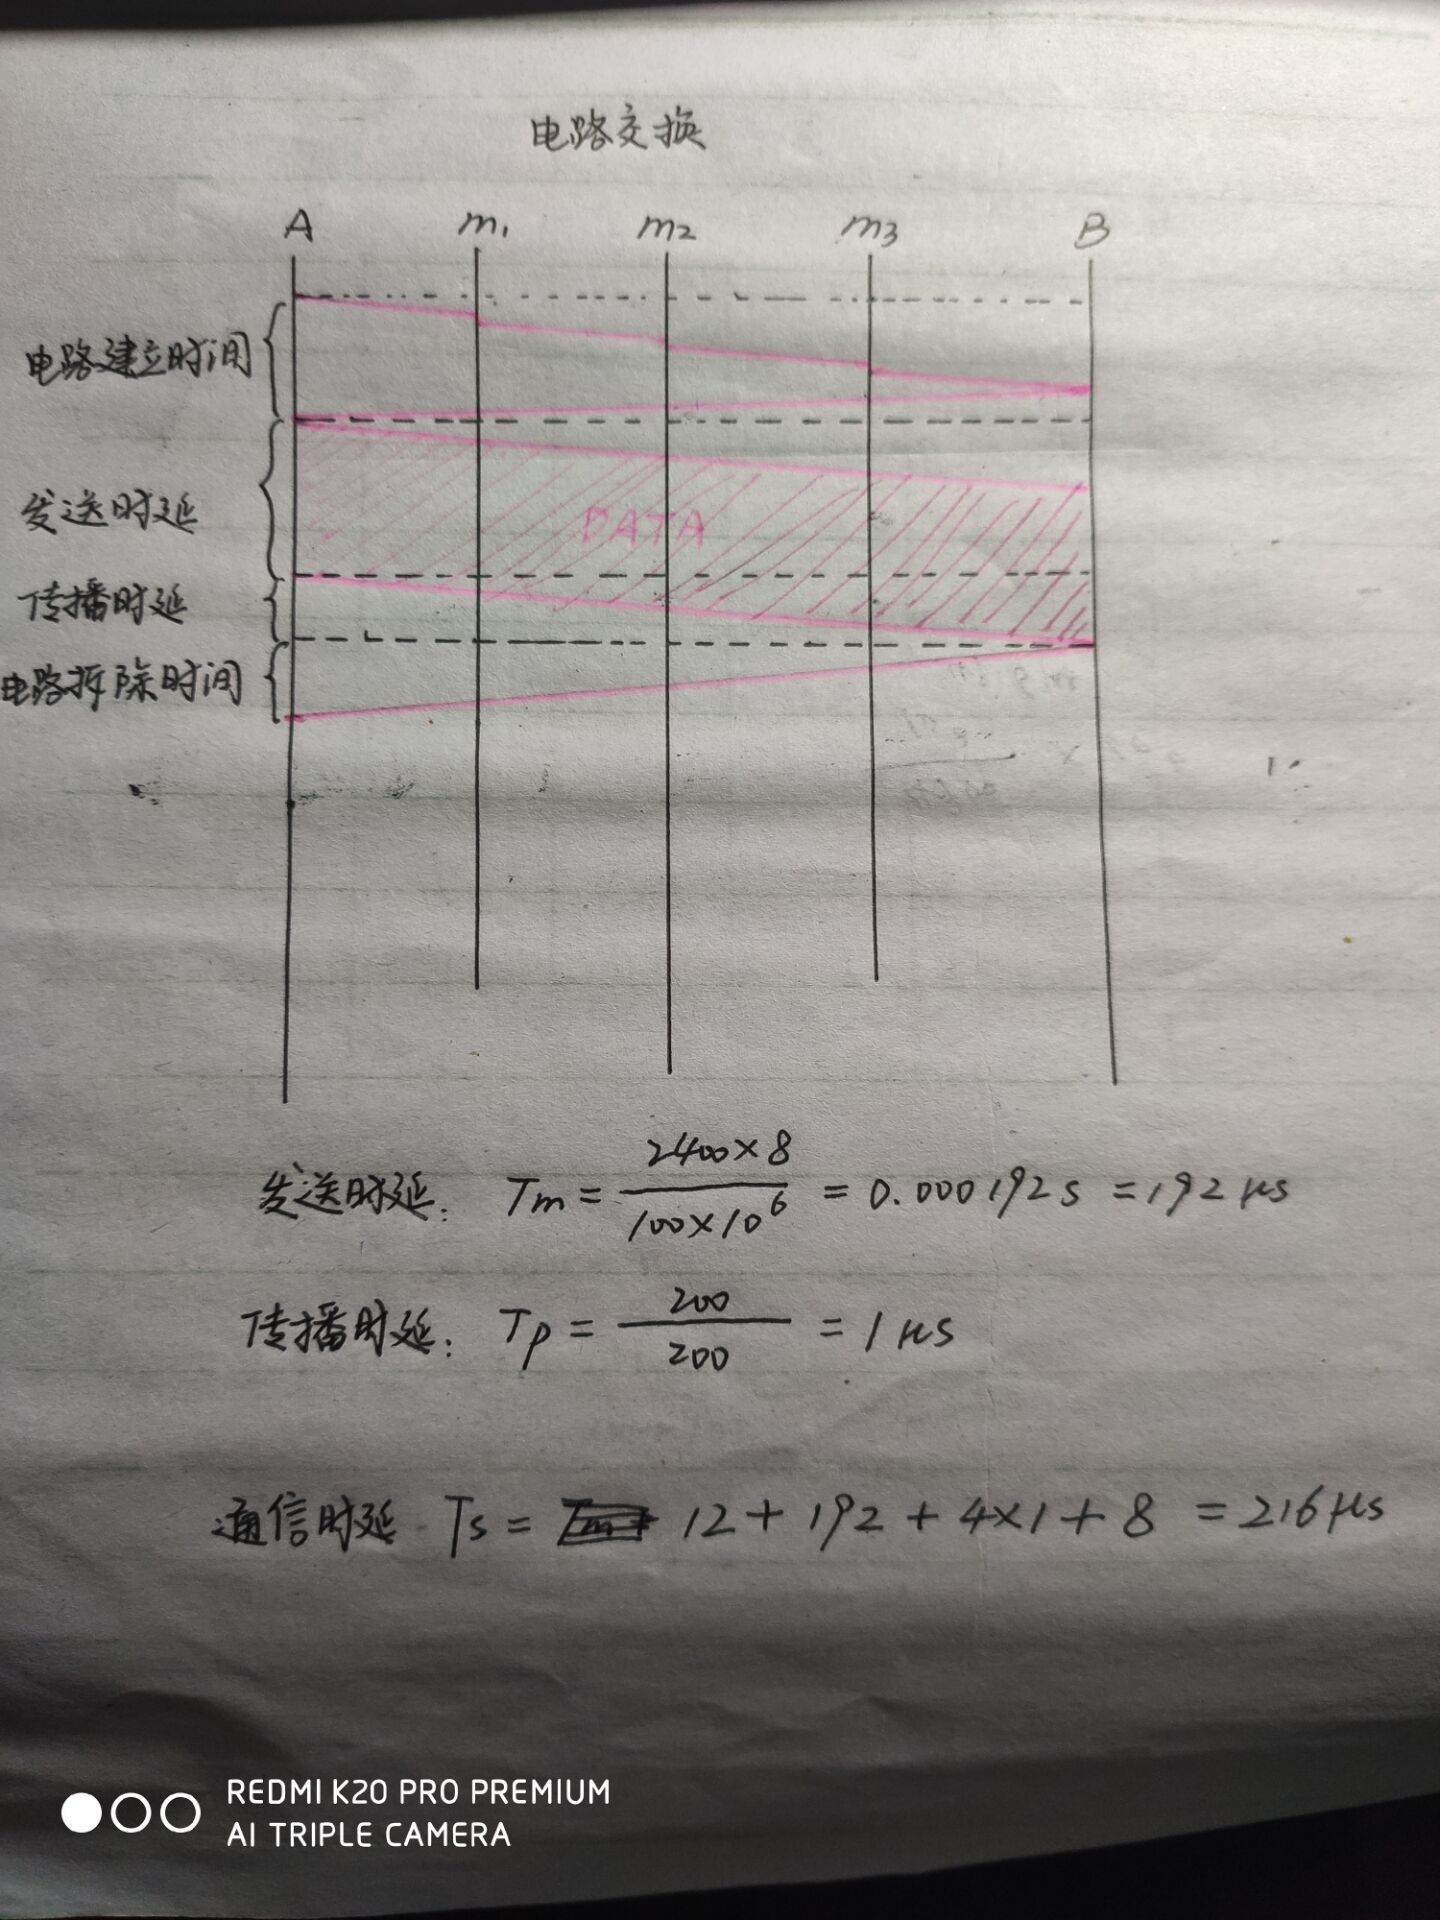 电路交换
A m₁ m₂ m₃ B
电路建立时间
发送时延
DATA
传播时延
电路拆除时间
发送时延: Tm = 2400×8 / 100×10⁶ = 0.000192s = 192μs
传播时延: Tp = 200 / 200 = 1μs
通信时延 Ts = 12 + 192 + 4×1 + 8 = 216μs
REDMI K20 PRO PREMIUM
AI TRIPLE CAMERA